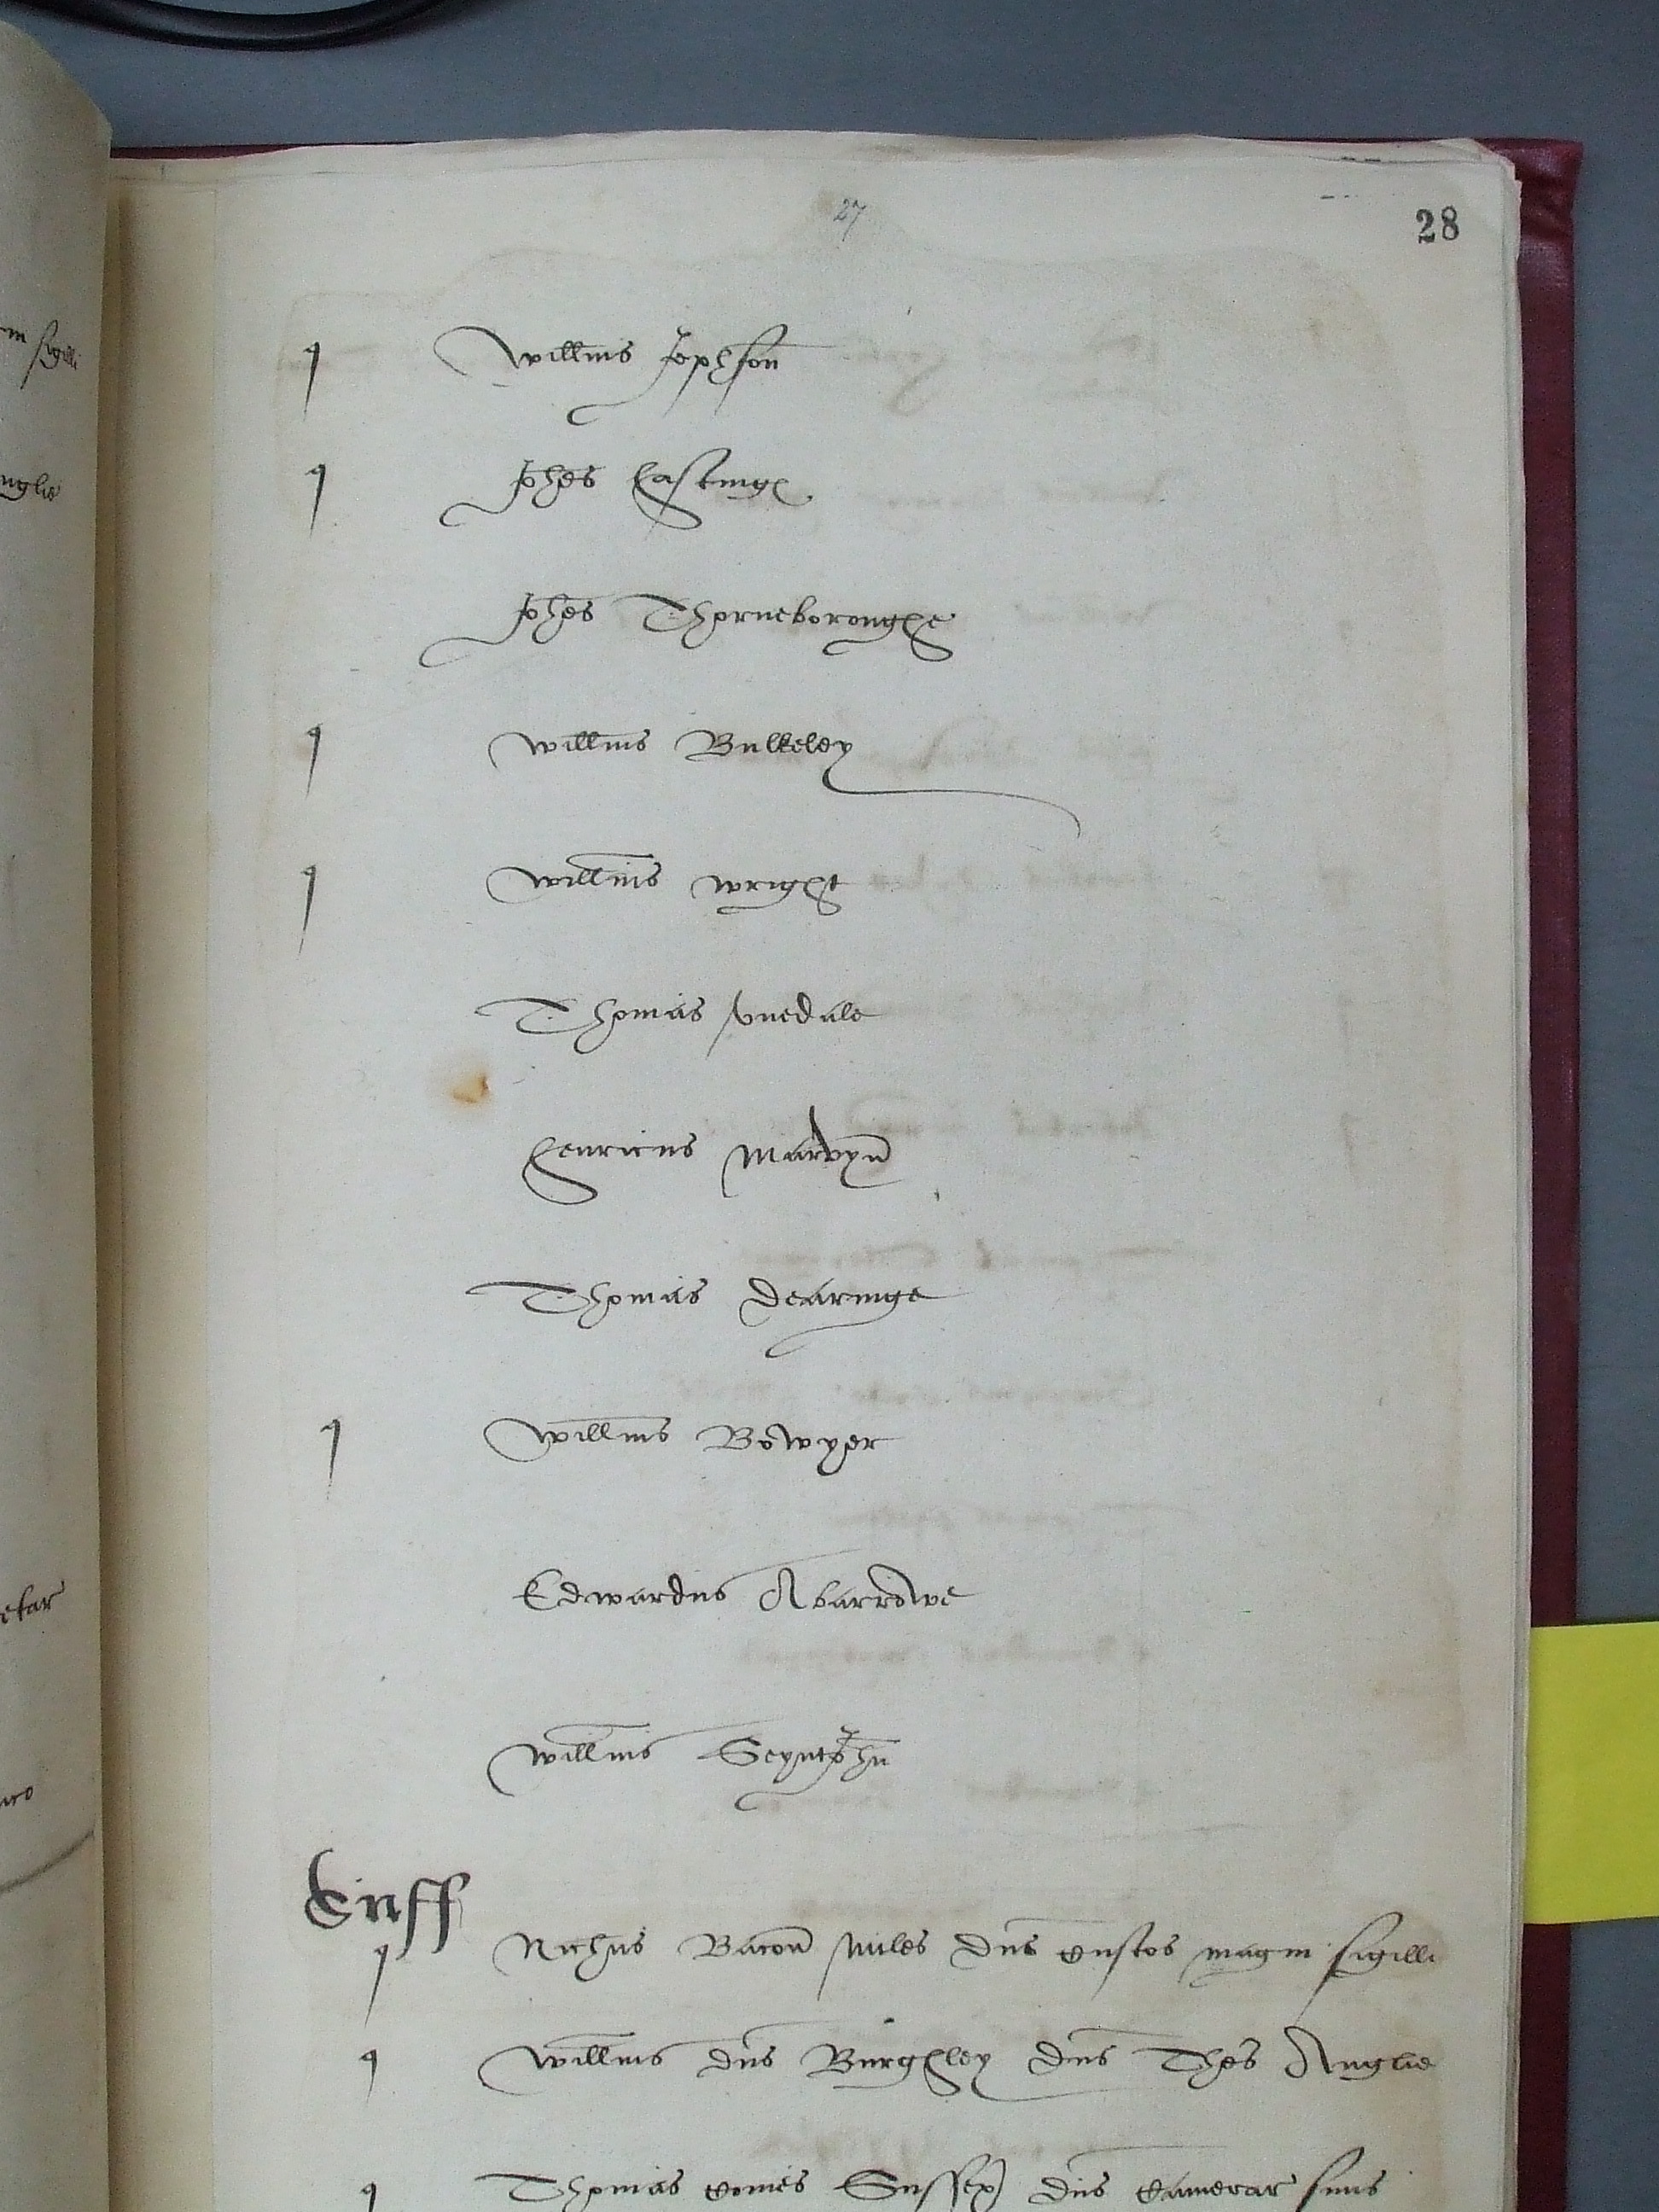 27
28
m sigilli
nglie
etar
q Willms Jephson
q Johes Hastings
Johes Thorneboroughe
q Willms Bulkeley
q Willms Wright
Thomas Uvedale
Henricus Marvyn
Thomas Dearinge
q Willms Bowyer
Edwardus Abarrowe
Willms SeyntJohn
q Nichus Bacon Miles Dns Custos magni sigilli
q Willms Dns Burghley Dns Thes Anglie
q Thomas Comes Sussex Dns Camerar